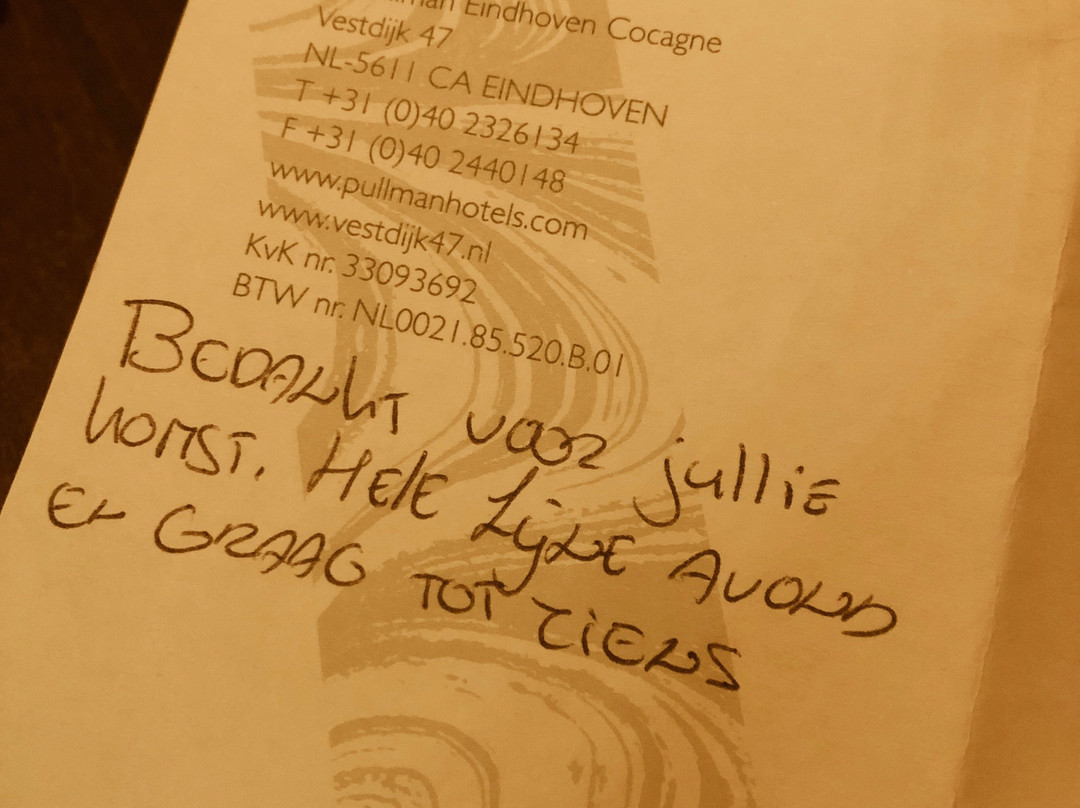 Eindhoven Cocagne
Vestdijk 47
NL-5611 CA EINDHOVEN
T +31 (0)40 2326134
F +31 (0)40 2440148
www.pullmanhotels.com
www.vestdijk47.nl
KvK nr. 33093692
BTW nr. NL0021.85.520.B.01
BEDANKT VOOR jullie
KOMST. HELE FIJNE AVOND
EN GRAAG TOT ZIENS